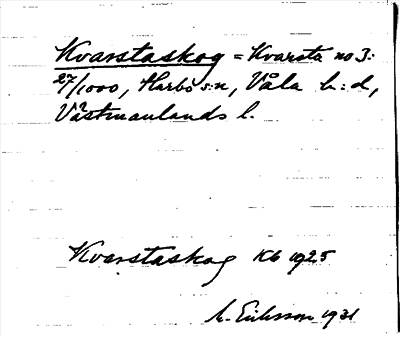 Kvarstaskog = Kvarsta no 3:
27/1000, Harbo s:n, Våla h:d,
Västmanlands l.
Kvarstaskog Kb 1925
M. Eriksson 1931